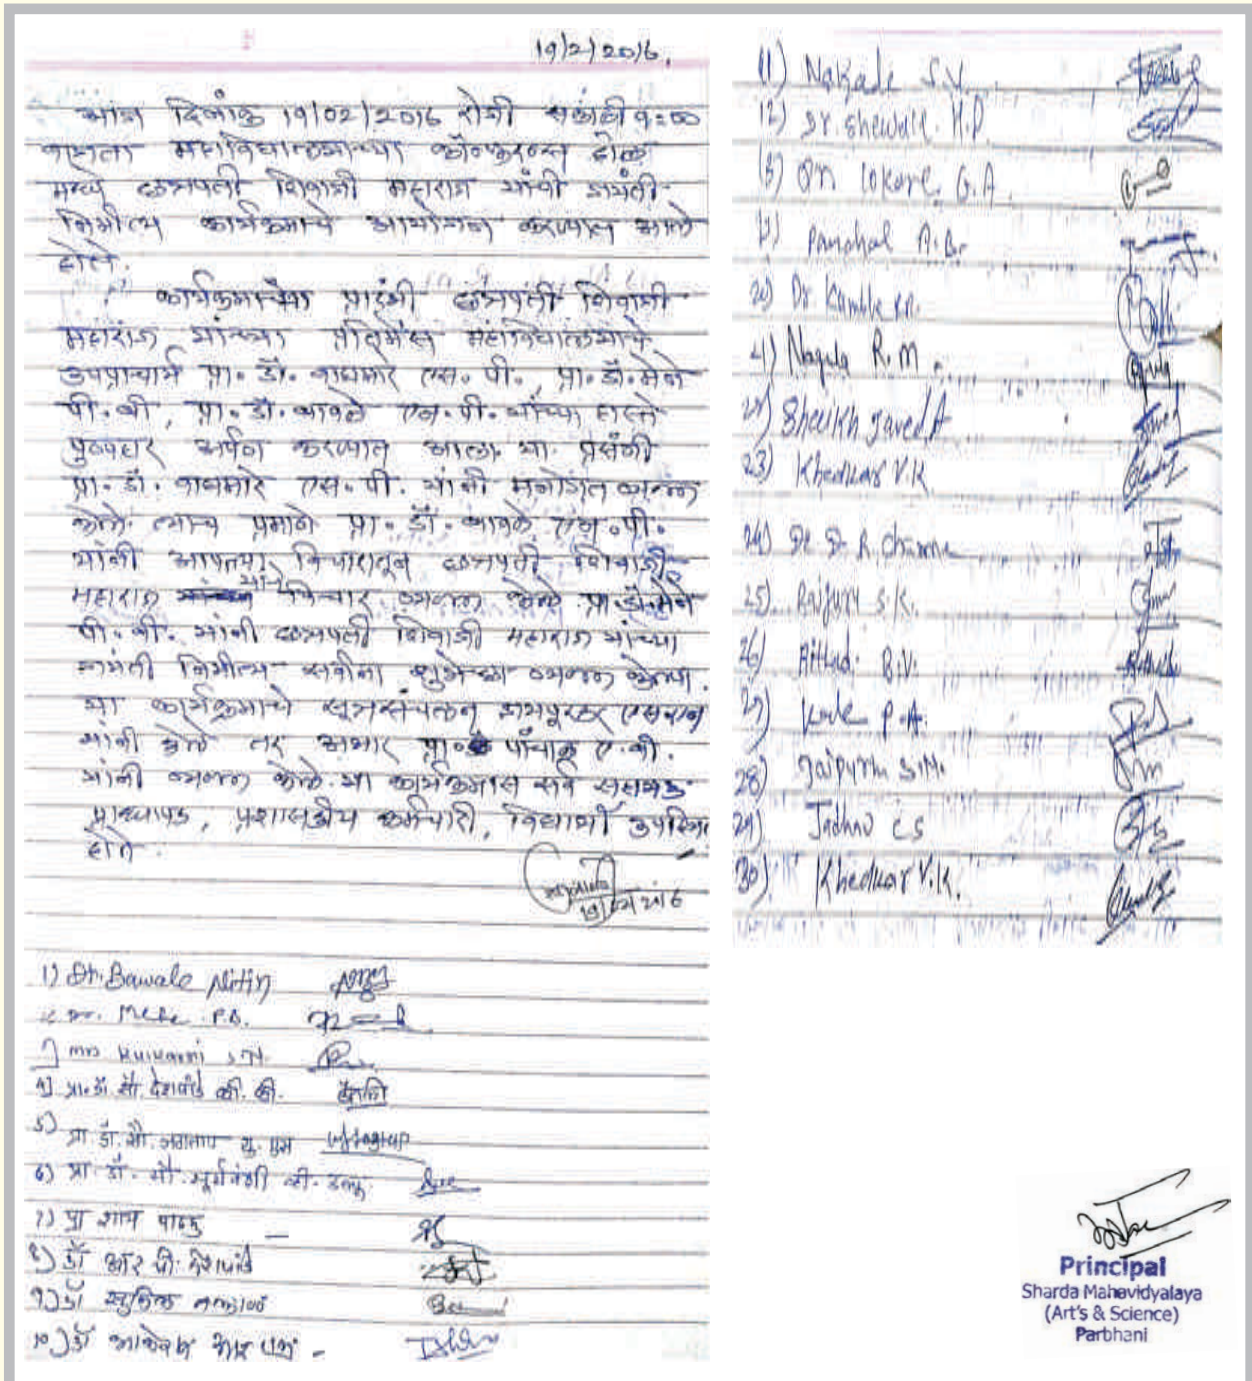 19/2/2016.
आज दिनांक 19/02/2016 रोजी सकाळी 9=00
वाजता महाविद्यालयाच्या कॉन्फरन्स हॉल
मध्ये छत्रपती शिवाजी महाराज यांची जयंती
निमीत्य कार्यक्रमाचे आयोजन करण्यात आले
होते.
कार्यक्रमाच्या प्रारंभी छत्रपती शिवाजी
महाराज यांच्या प्रतिमेस महाविद्यालयाचे
उपप्राचार्य प्रा. डॉ. वाघमारे एस. पी., प्रा. डॉ. मेने
पी. बी, प्रा. डॉ. बावले एन. पी. यांच्या हास्ते
पुष्पहार अर्पण करण्यात आला. या प्रसंगी
प्रा. डॉ. वाघमारे एस. पी. यांनी मनोगत व्यक्त
केले. त्याच प्रमाने प्रा. डॉ. बावले एन. पी.
यांनी आपल्या विचारातून छत्रपती शिवाजी
महाराज यांचे विचार व्यक्त केले. प्रा. डॉ. मेने
पी. बी. यांनी छत्रपती शिवाजी महाराज यांच्या
जयंती निमीत्य सर्वांना शुभेच्छा व्यक्त केल्या.
या कार्यक्रमाचे सूत्रसंचलन जयपूरकर एस एन
यांनी केले तर आभार प्रा. पांचाळ ए. बी.
यांनी व्यक्त केले. या कार्यक्रमास सर्व
प्राध्यापक, प्रशासकीय कर्मचारी, विद्यार्थी उपस्थित
होते.
19/02/2016
1) Dr. Bawale Nitin
P.B.
3) Mrs Kulkarni S.N.
4) प्रा. डॉ. सौ. देशपांडे व्ही. व्ही.
5) प्रा. डॉ. सौ. जगताप यु. एम
6) प्रा. डॉ. सौ. सूर्यवंशी व्ही. डब्लू.
7) प्रा शाम पाठक
8) डॉ आर पी. देशपांडे
9) डॉ सुनिल
10) डॉ
11) Nakade S.V.
12) Dr. Shewale H.D
13) G.A.
Panchal A.B.
20) Dr. Kamble
21) Nagule R.M.
22) Sheikh Javed A
23) Khedkar V.K
24) Dr D.R.
25) Rajput S.K.
26) B.V.
27) P.A.
28) Jaipurn S.N.
29) Jadhav C S
30) Khedkar V.K.
Principal
Sharda Mahavidyalaya
(Art's & Science)
Parbhani